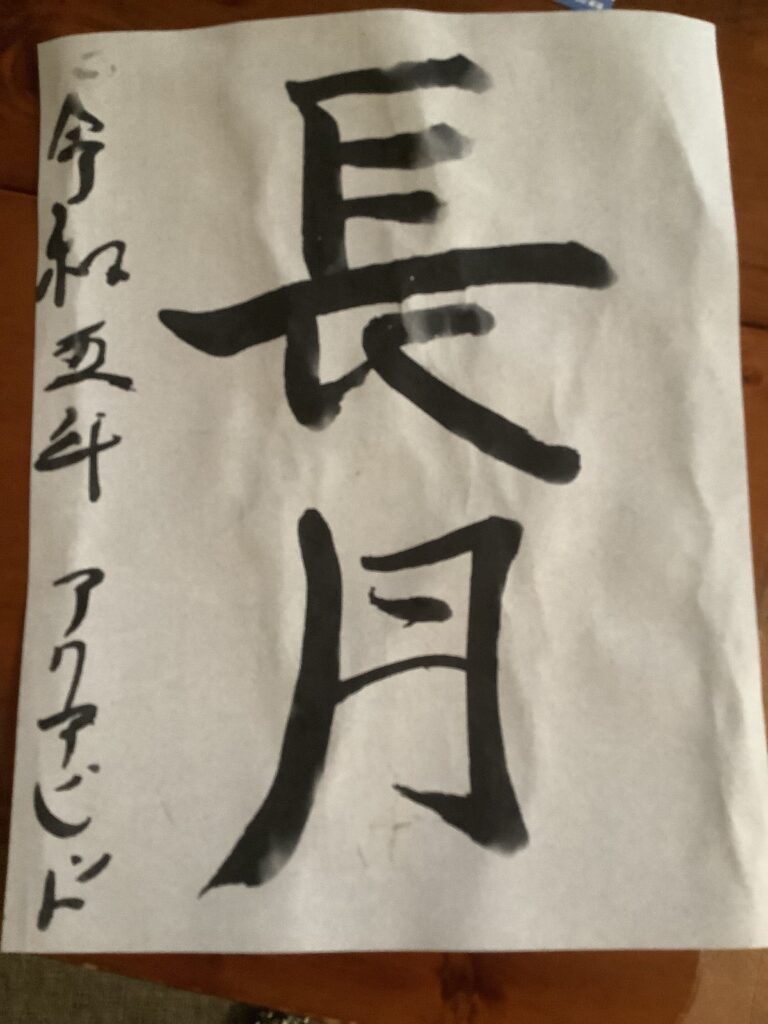 長月
令和五年 アクアビット